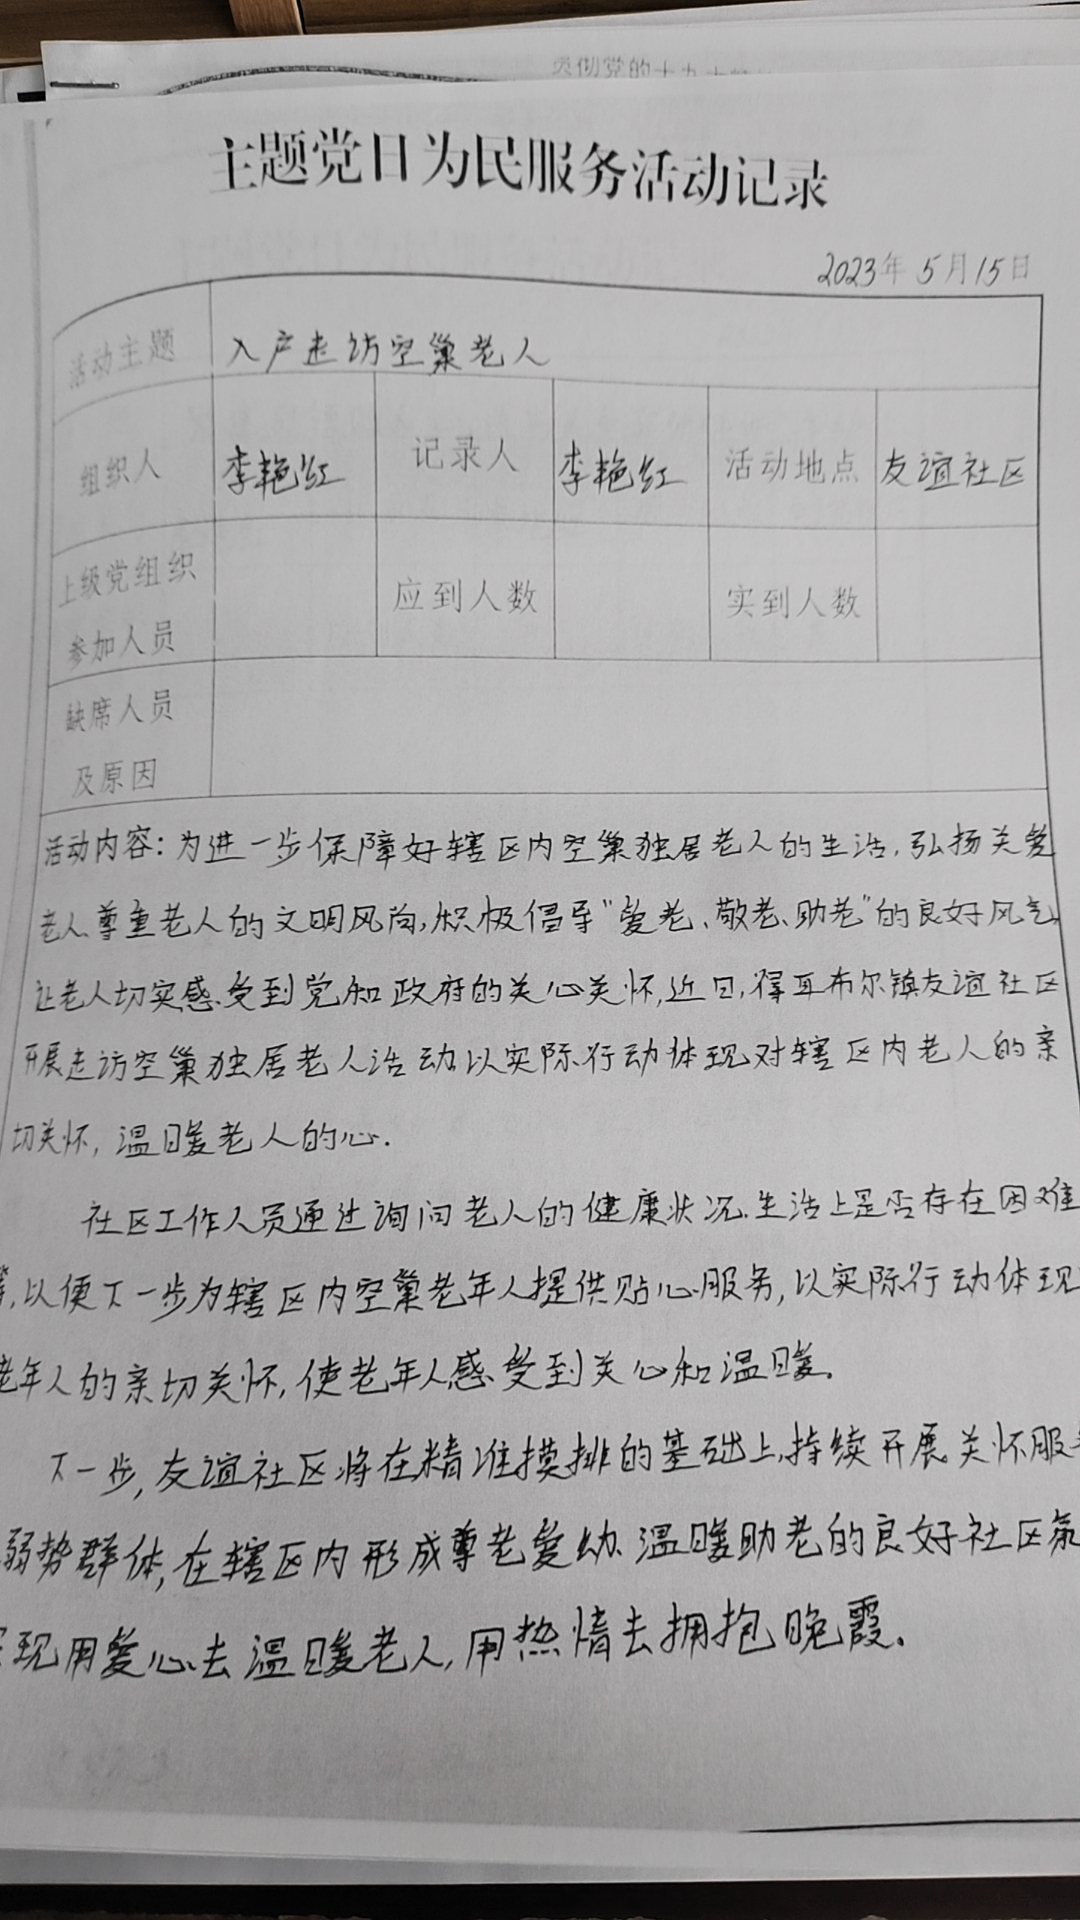 贯彻党的十九大
主题党日为民服务活动记录
2023年 5月15日
活动主题 入户走访空巢老人
组织人 李艳红 记录人 李艳红 活动地点 友谊社区
上级党组织
参加人员 应到人数 实到人数
缺席人员
及原因
活动内容：为进一步保障好辖区内空巢独居老人的生活,弘扬关爱
老人、尊重老人的文明风尚,积极倡导“爱老、敬老、助老”的良好风气,
让老人切实感受到党和政府的关心关怀,近日,得耳布尔镇友谊社区
开展走访空巢独居老人活动,以实际行动体现对辖区内老人的亲
切关怀,温暖老人的心.
社区工作人员通过询问老人的健康状况.生活上是否存在困难
等,以便下一步为辖区内空巢老年人提供贴心服务,以实际行动体现
老年人的亲切关怀,使老年人感受到关心和温暖。
下一步,友谊社区将在精准摸排的基础上,持续开展关怀服
弱势群体,在辖区内形成尊老爱幼、温暖助老的良好社区氛
现用爱心去温暖老人,用热情去拥抱晚霞。